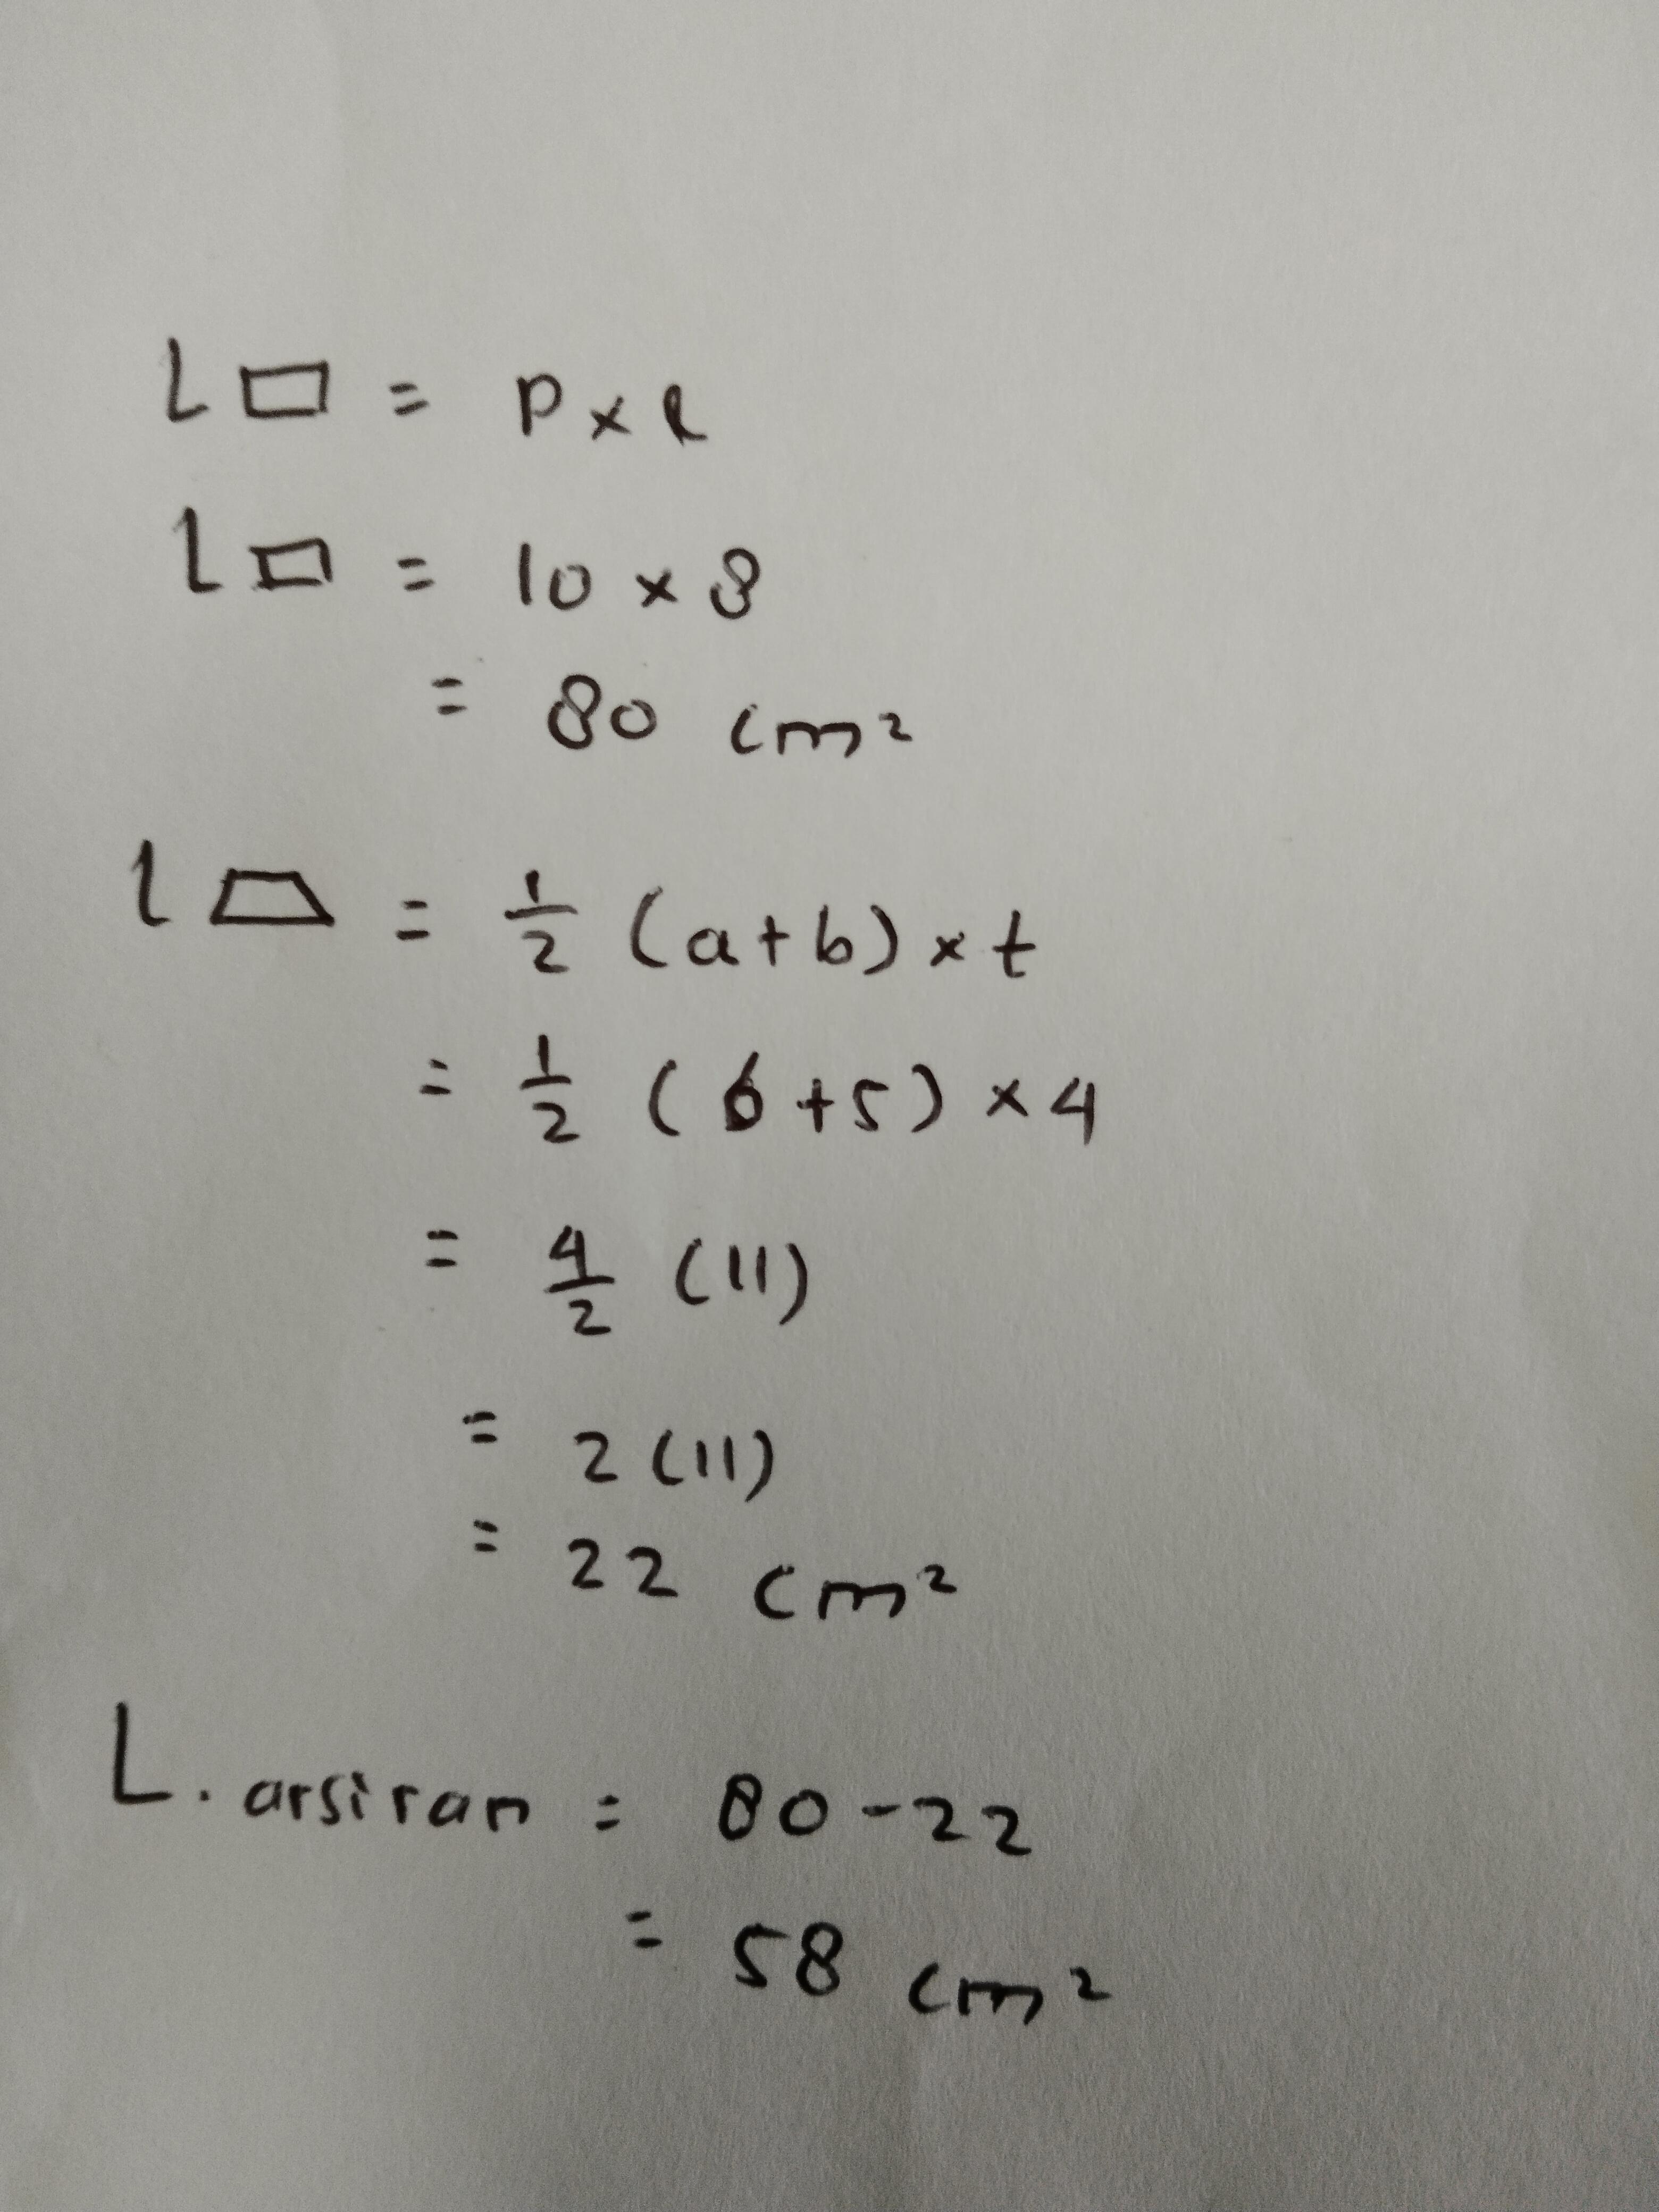 L▭ = P x l
L▭ = 10 x 8
= 80 cm²
L⏢ = 1/2 (a+b) x t
= 1/2 (6+5) x 4
= 4/2 (11)
= 2(11)
= 22 cm²
L. arsiran = 80-22
= 58 cm²